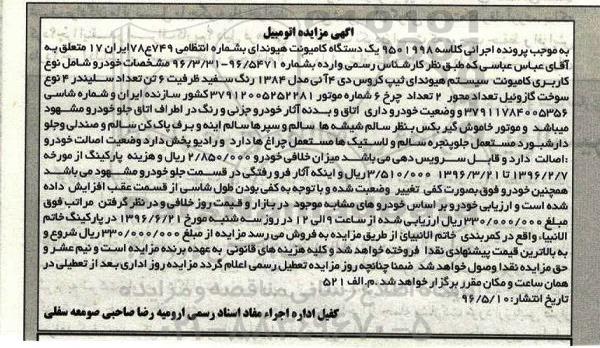 آگهی مزایده اتومبیل
به موجب پرونده اجرائی کلاسه ۹۵۰۱۹۹۸ یک دستگاه کامیونت هیوندای بشماره انتظامی ۷۴۹ع۷۸ایران ۱۷ متعلق به
آقای عباس عباسی که طبق نظر کارشناس رسمی وارده بشماره ۹۶/۵۴۷۱-۹۶/۳/۳۱ مشخصات خودرو شامل نوع
کاربری کامیونت سیستم هیوندای تیپ کروس دی ۴آنی مدل ۱۳۸۴ رنگ سفید ظرفیت ۶ تن تعداد سیلندر ۴ نوع
سوخت گازوئیل تعداد محور ۲ تعداد چرخ ۶ شماره موتور ۳۷۹۱۲۰۰۵۲۵۲۲۸۱ کشور سازنده ایران و شماره شاسی
۳۷۹۱۱۷۸۴۰۰۵۳۵۶ و وضعیت خودرو داری اتاق و بدنه آثار خودرو جزئی و رنگ در اطراف اتاق جلو خودرو مشهود
میباشد و موتور خاموش گیر بکس بنظر سالم شیشه ها سالم و سپرها سالم اینه و برف پاک کن سالم و صندلی وجلو
دارشبورد مستعمل جلوپنجره سالم و لاستیک ها مستعمل چراغ ها دارد و رادیو پخش دارد وضعیت اصالت خودرو
:اصالت دارد و قابل سرویس دهی می باشد میزان خلافی خودرو ۲/۸۵۰/۰۰۰ ریال و هزینه پارکینگ از مورخه
۱۳۹۶/۲/۷ تا ۱۳۹۶/۳/۲۱ ۳/۵۱۰/۰۰۰ ریال و اینکه آثار فرو رفتگی در قسمت جلو خودرو مشهود می باشد
همچنین خودرو فوق بصورت کفی تغییر وضعیت شده و با توجه به کفی بودن طول شاسی از قسمت عقب افزایش داده
شده است و ارزیابی خودرو بر اساس خودرو های مشابه موجود در بازار و قیمت روز خلافی و در نظر گرفتن مراتب فوق
مبلغ ۳۳۰/۰۰۰/۰۰۰ ریال ارزیابی شده از ساعت ۹ الی ۱۲ در روز سه شنبه مورخ ۱۳۹۶/۶/۲۱ در پارکینگ خاتم
الانبیاء واقع در کمربندی خاتم الانبیای از طریق مزایده به فروش می رسد مزایده از مبلغ ۳۳۰/۰۰۰/۰۰۰ ریال شروع و
به بالاترین قیمت پیشنهادی نقدا فروخته خواهد شد و کلیه هزینه های قانونی به عهده برنده مزایده است و نیم عشر و
حق مزایده نقدا وصول خواهد شد ضمنا چنانچه روز مزایده تعطیل رسمی اعلام گردد مزایده روز اداری بعد از تعطیلی در
همان ساعت و مکان مقرر برگزار خواهد شد .م.الف ۵۲۱
تاریخ انتشار: ۹۶/۵/۱۰
کفیل اداره اجراء مفاد اسناد رسمی ارومیه رضا صاحبی صومعه سفلی